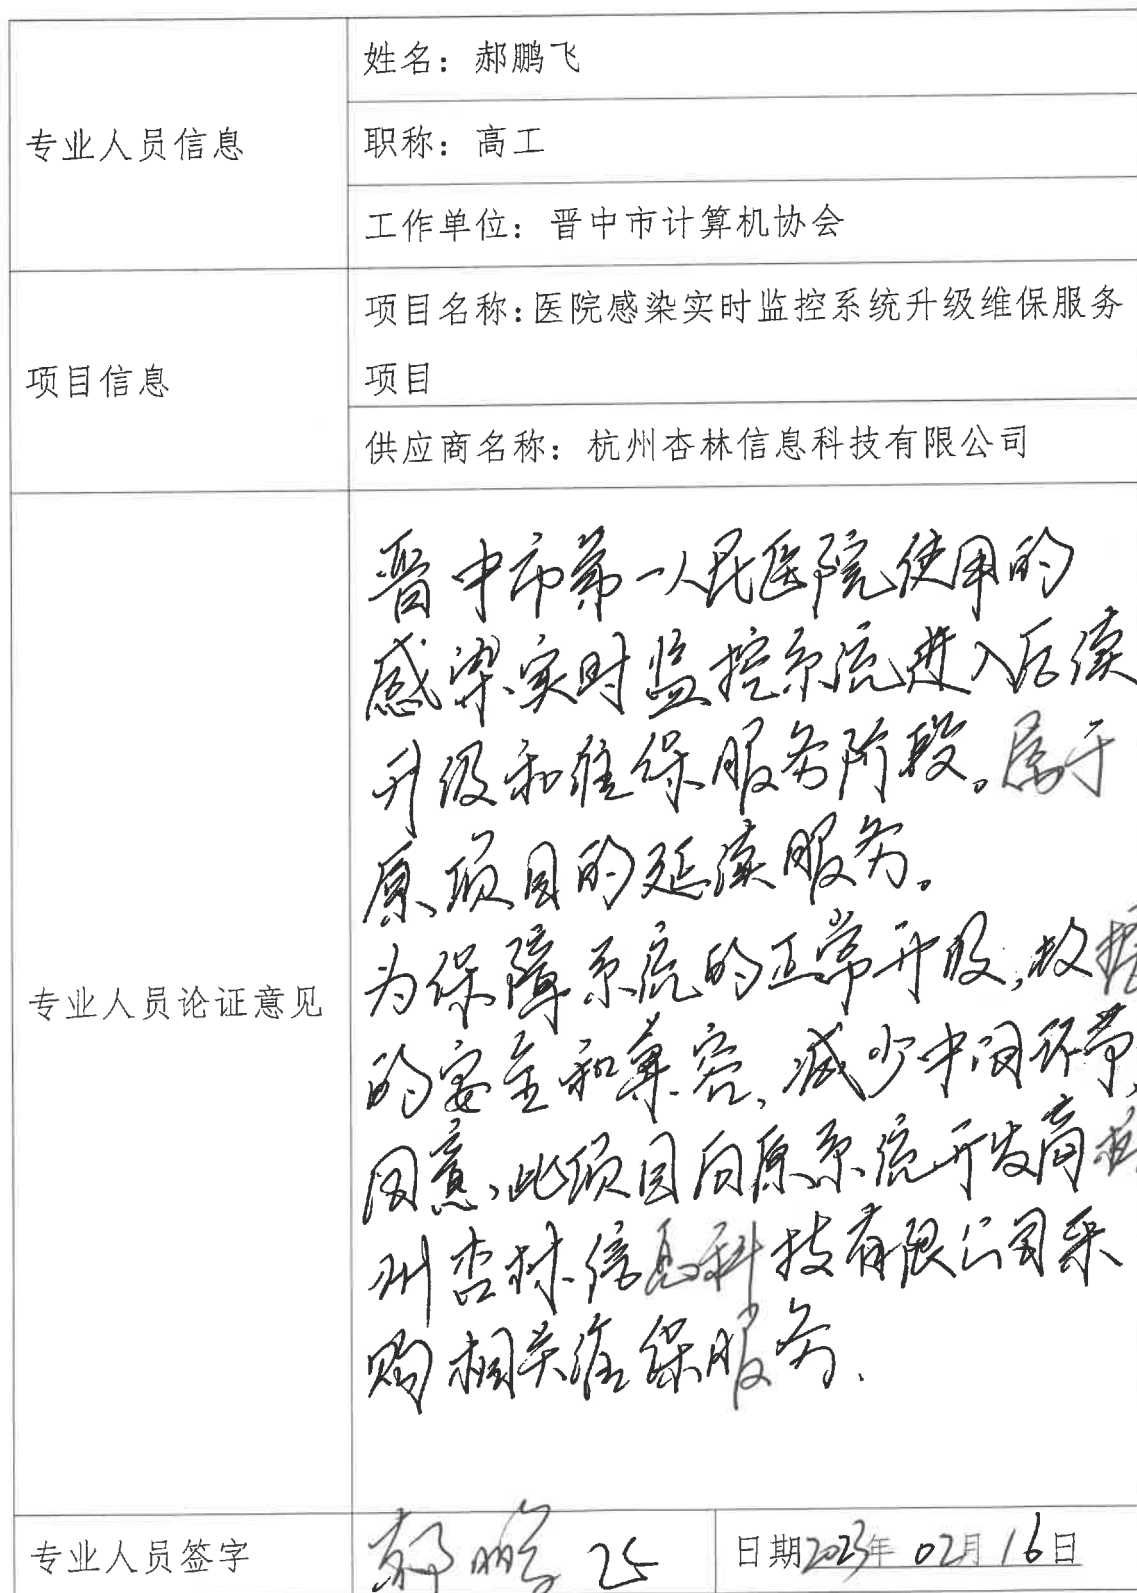 专业人员信息
姓名：郝鹏飞
职称：高工
工作单位：晋中市计算机协会
项目信息
项目名称：医院感染实时监控系统升级维保服务
项目
供应商名称：杭州杏林信息科技有限公司
专业人员论证意见
晋中市第一人民医院使用的
感染实时监控系统进入后续
升级和维保服务阶段。属于
原项目的延续服务。
为保障系统的正常升级，数据
的安全和兼容，减少中间环节，
同意此项目向原系统开发商杭
州杏林信息科技有限公司采
购相关维保服务.
专业人员签字
郝鹏飞
日期2023年02月16日